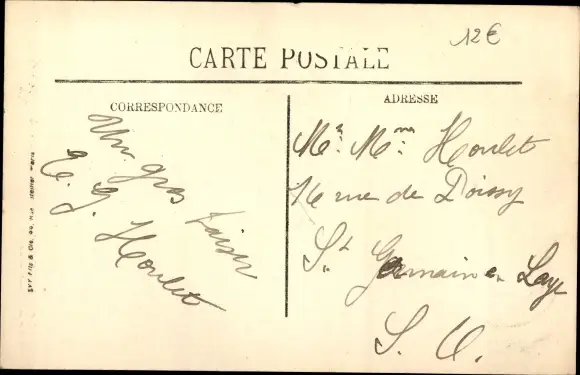 12€
CARTE POSTALE
CORRESPONDANCE
ADRESSE
Un gros baiser
E. G. Houlet
Mr. Mme. Houlet
16 rue de Poissy
St Germain en Laye
S. O.